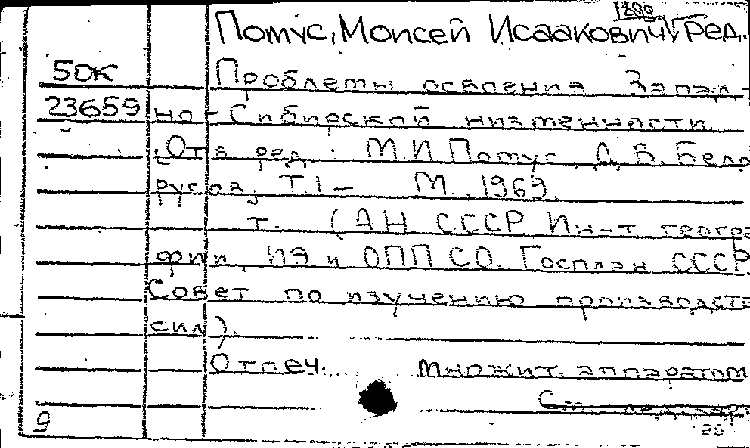 Помус, Моисей Исаакович, Ред.
50К
Проблемы освоения Запад-
23659 но-Сибирской низменности.
Отв. ред.: М.И Помус, Д. В. Бело
русов, Т.1- М., 1969.
т. (АН СССР Ин-т геогра
фии, ИЭ и ОПП СО. Госплан СССР
Совет по изучению производств
сил).
Отпеч. множит. аппаратом
См.
9